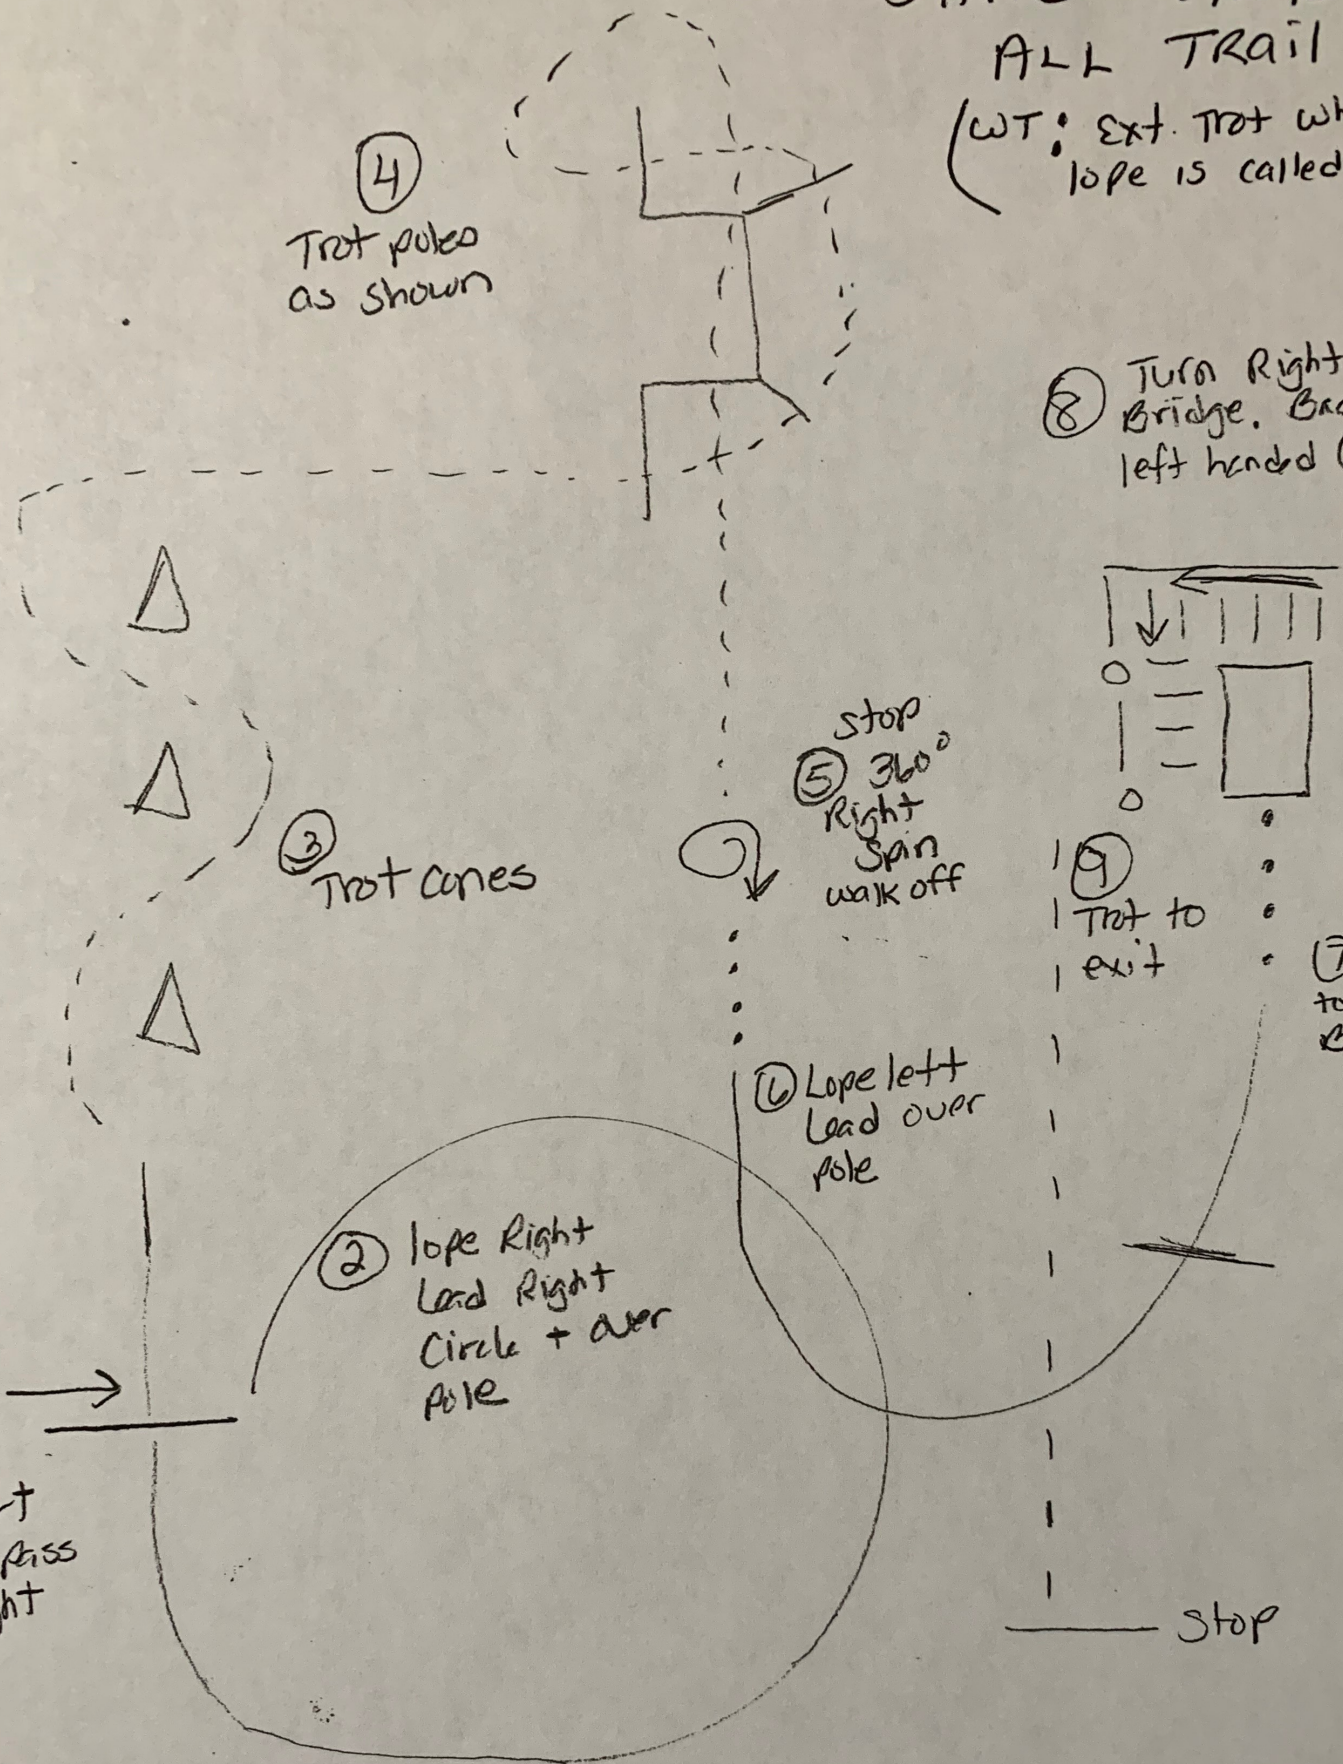 ALL TRail
(WT: Ext. Trot
lope is called
④
Trot poles
as shown
⑧ Turn Right
Bridge.
left handed
stop
⑤ 360°
Right
Spin
walk off
③
Trot cones
⑨
Trot to
exit
⑥ Lope left
Lead over
pole
② lope Right
Lead Right
Circle + over
pole
pass
Stop